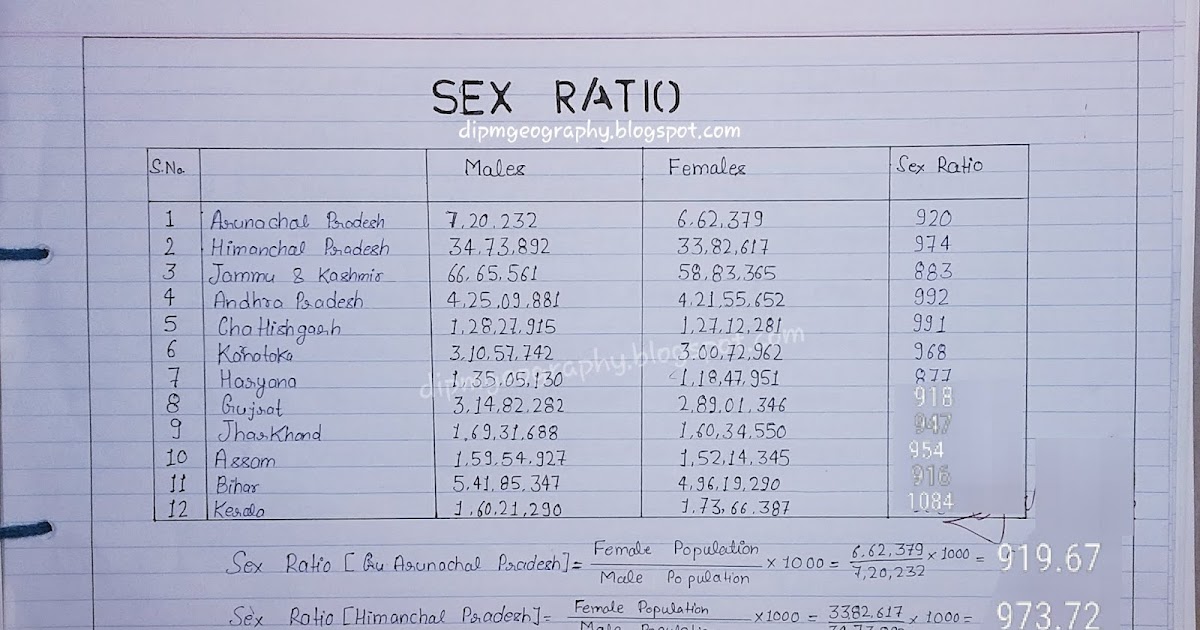 SEX RATIO
dipmgeography.blogspot.com
S.No. Males Females Sex Ratio
1 Arunachal Pradesh 7,20,232 6.62,379 920
2 Himanchal Pradesh 34.73,892 33,82,617 974
3 Jammu & Kashmir 66,65,561 58,83,365 883
4 Andhra Pradesh 4,25.09,881 4,21,55,652 992
5 Chattishgarh 1,28,27,915 1,27,12,281 991
6 Karnataka 3,10,57,742 3,00,72,962 968
dipmgeography.blogspot.com
7 Haryana 1,35,05,130 1,18,47,951 877
8 Gujrat 3,14,82,282 2,89,01,346 918
9 Jharkhand 1.69,31,688 1,60,34,550 947
10 Assam 1,59,54,927 1,52,14,345 954
11 Bihar 5.41,85,347 4,96,19,290 916
12 Kerala 1,60,21,290 1.73,66,387 1084
Sex Ratio [Gu Arunachal Pradesh]= Female Population / Male Population × 1000 = 6,62,379 / 7,20,232 × 1000 = 919.67
Sex Ratio [Himanchal Pradesh]= Female Population / × 1000 = 3382,617 / × 1000 = 973.72